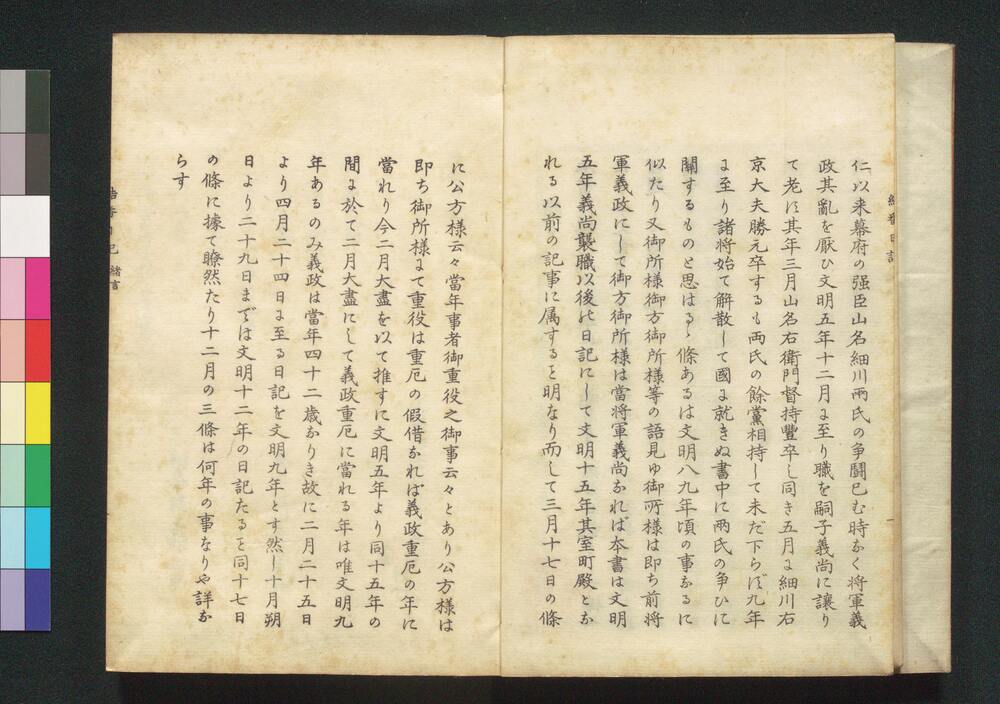 仁以来幕府の强臣山名細川兩氏の争鬪已む時なく将軍義
政其亂を厭ひ文明五年十二月に至り職を嗣子義尚に讓り
て老す其年三月山名右衛門督持豐卒し同き五月に細川右
京大夫勝元卒するも両氏の餘黨相持して未だ下らず九年
に至り諸将始て解散して國に就きぬ書中に兩氏の争ひに
關するものと思はるゝ條あるは文明八九年頃の事なるに
似たり又御所様御方御所様等の語見ゆ御所様は即ち前将
軍義政にして御方御所様は當将軍義尚なれば本書は文明
五年義尚襲職以後の日記にして文明十五年其室町殿とな
れる以前の記事に属すること明なり而して三月十七日の條
に公方様云々當年事者御重役之御事云々とあり公方様は
即ち御所様にて重役は重厄の假借なれば義政重厄の年に
當れり今二月大盡を以て推すに文明五年より同十五年の
間に於て二月大盡にして義政重厄に當れる年は唯文明九
年あるのみ義政は當年四十二歳なりき故に二月二十五日
より四月二十四日に至る日記を文明九年とす然し十月朔
日より二十九日までは文明十二年の日記たること同十七日
の條に據て瞭然たり十二月の三條は何年の事なりや詳な
らす
緒言